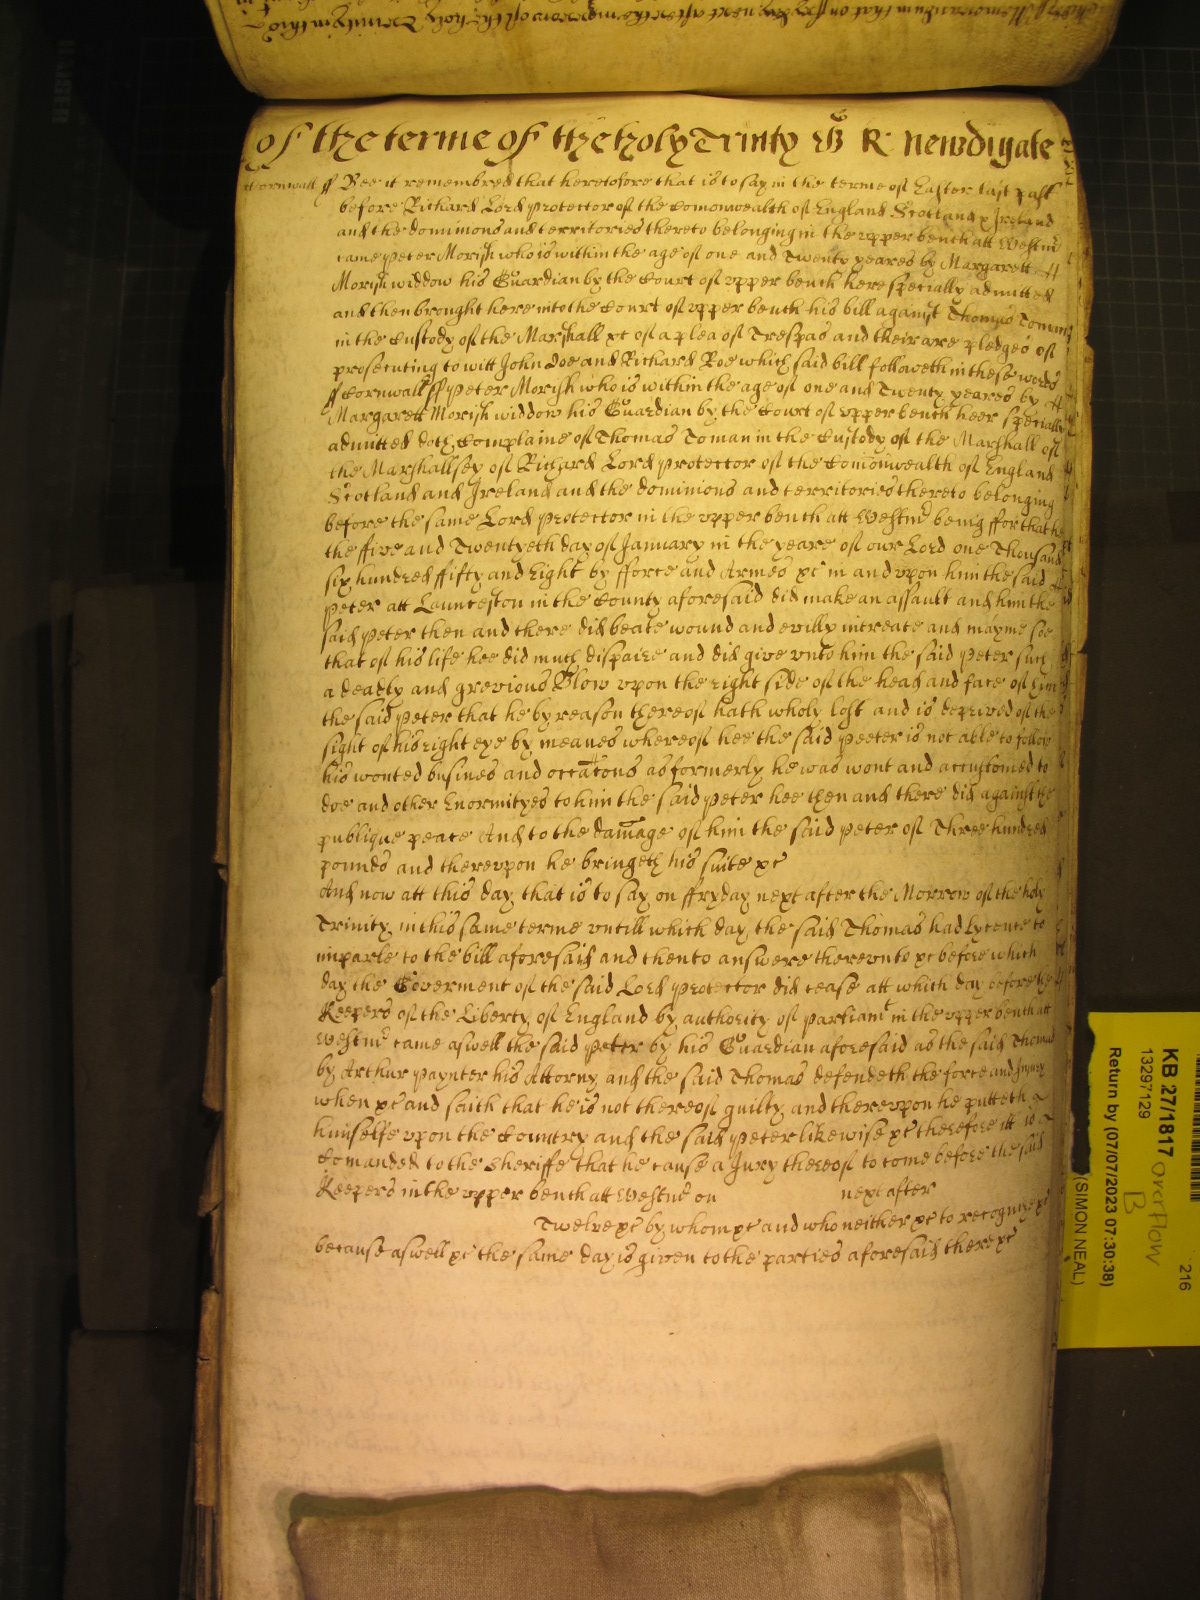 Of the terme of the holy Trinity W R: Newdigate
Cornwall ss Bee it remembred that heretofore that is to say in the terme of Easter last past
before Richard Lord Protector of the Comonwealth of England Scotland & Ireland
and the dominions and territories thereto belonging in the vpper bench att Westmr
came Peter Morish who is within the age of one and Twenty yeares by Margarett
Morish widdow his Guardian by the Court of vpper bench here specially admitted
and then brought here into the Court of vpper bench his bill against Thomas Toman
in the Custody of the Marshall &c of a plea of Trespas and their are pledges of
prosecuting to witt John Doe and Richard Roe which said bill followeth in these words
ss Cornwall ss Peter Morish who is within the age of one and Twenty yeares by
Margarett Morish widdow his Guardian by the Court of vpper bench heer specially
admitted doth Complaine of Thomas Toman in the Custody of the Marshall of
the Marshallsey of Richard Lord Protector of the Comonwealth of England
Scotland and Ireland and the dominions and territories thereto belonging
before the same Lord Protector in the vpper bench att Westmr being ffor that he
the five and Twentyeth day of January in the yeare of our Lord one Thousand
six hundred ffifty and Eight by fforce and Armes &c in and vpon him the said
Peter att Launceston in the County aforesaid did make an assault and him the
said Peter then and there did beate wound and evilly intreate and mayme soe
that of his life hee did much dispaire and did give vnto him the said Peter such
a deadly and grevious Blow vpon the right side of the head and face of him
the said Peter that he by reason thereof hath wholy lost and is deprived of the
sight of his right eye by meanes whereof hee the said Peeter is not able to follow
his wonted busines and occations as formerly he was wont and accustomed to
doe and other Enormityes to him the said Peter hee then and there did against the
publique peace And to the damage of him the said Peter of Three hundred
pounds and therevpon he bringeth his suite &c
And now att this day that is to say on ffryday next after the Morrow of the holy
Trinity in this same terme vntill which day the said Thomas had Lycence to
imparle to the bill aforesaid and then to answere therevnto &c before which
day the Goverment of the said Lord Protector did cease att which day before the
Keepers of the Liberty of England by authority of Parliamt in the vpper bench att
Westmr came aswell the said Peter by his Guardian aforesaid as the said Thomas
by Arthur Paynter his Attorny and the said Thomas defendeth the force and Injury
when &c and saith that he is not thereof guilty and therevpon he putteth
himselfe vpon the Country and the said Peter likewise &c therefore itt is
Comanded to the Sheriffe that he cause a Jury thereof to come before the said
Keepers in the vpper bench att Westmr on next after
Twelve &c by whom &c and who neither &c to recognize &c
because aswell &c the same day is given to the parties aforesaid there &c
KB 27/1817
13297129
Return by (07/07/2023 07:30:38)
(SIMON NEAL)
216
overflow
B